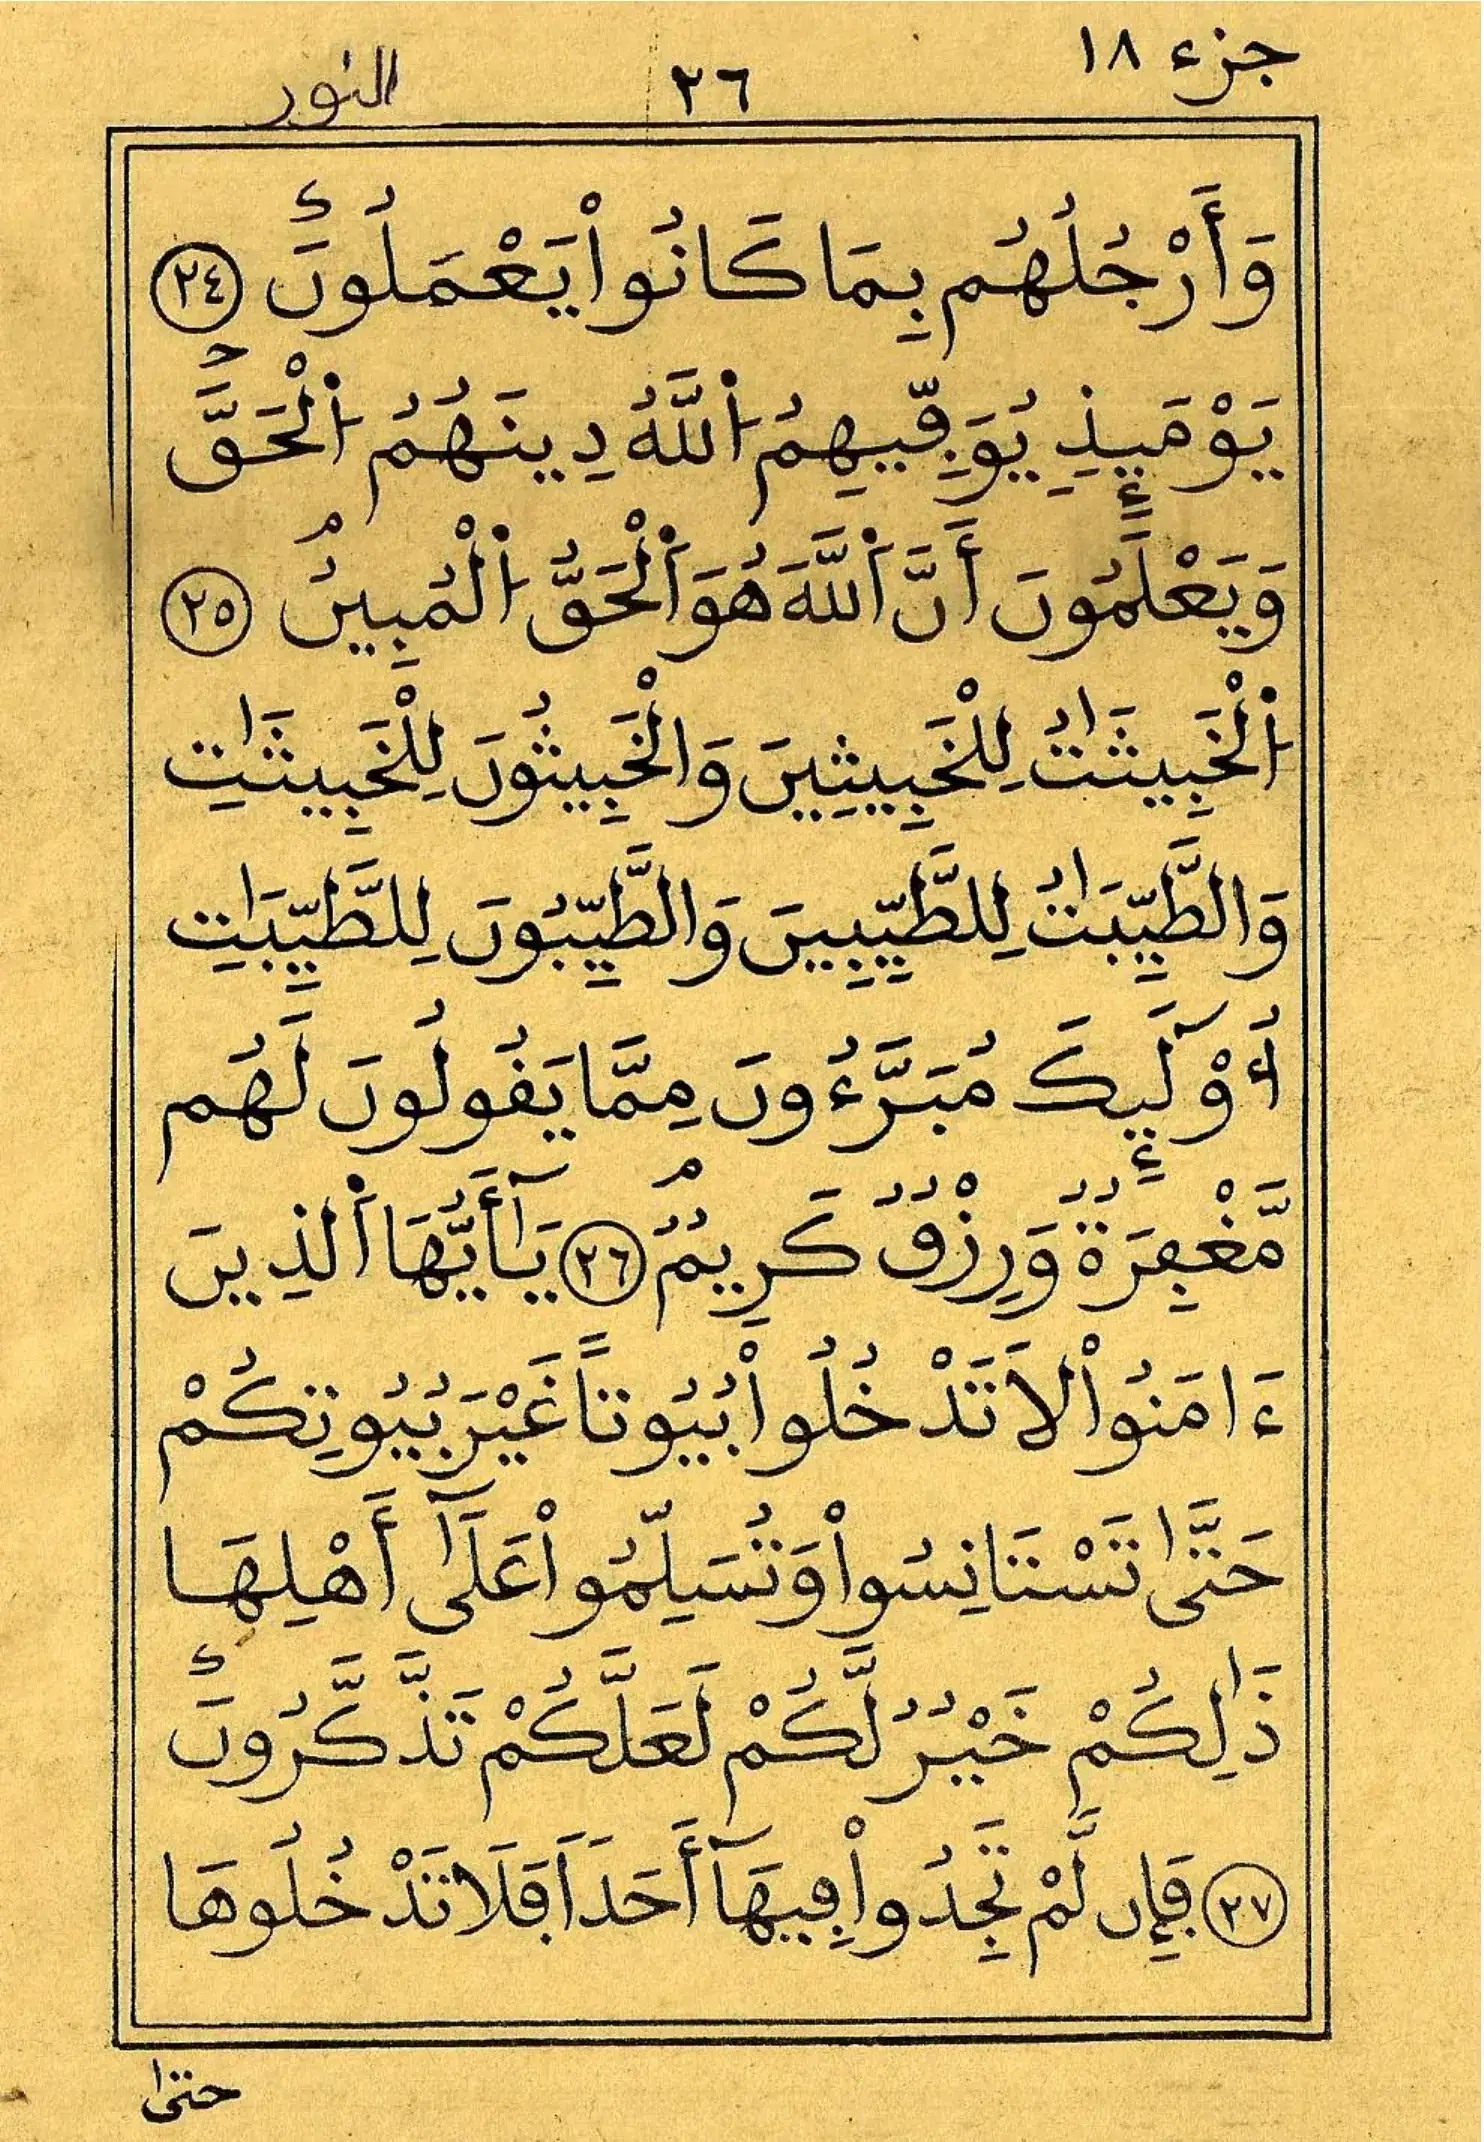 جزء ١٨
٣٦
النور
وَأَرْجُلُهُم بِمَا كَانُواْ يَعْمَلُونَ ٢٤
يَوْمَئِذٍ يُوَفِّيهِمُ اُ۬للَّهُ دِينَهُمُ اُ۬لْحَقَّ
وَيَعْلَمُونَ أَنَّ اَ۬للَّهَ هُوَ اَ۬لْحَقُّ اُ۬لْمُبِينُ ٢٥
اُ۬لْخَبِيثَٰتُ لِلْخَبِيثِينَ وَالْخَبِيثُونَ لِلْخَبِيثَٰتِ
وَالطَّيِّبَٰتُ لِلطَّيِّبِينَ وَالطَّيِّبُونَ لِلطَّيِّبَٰتِ
أُوْلَٰٓئِكَ مُبَرَّءُونَ مِمَّا يَقُولُونَ لَهُم
مَّغْفِرَةٌ وَرِزْقٌ كَرِيمٌ ٢٦ يَٰٓأَيُّهَا اَ۬لذِينَ
ءَامَنُواْ لَا تَدْخُلُواْ بُيُوتاً غَيْرَ بُيُوتِكُمْ
حَتَّىٰ تَسْتَانِسُواْ وَتُسَلِّمُواْ عَلَىٰٓ أَهْلِهَا
ذَٰلِكُمْ خَيْرٌ لَّكُمْ لَعَلَّكُمْ تَذَّكَّرُونَ
٢٧ فَإِن لَّمْ تَجِدُواْ فِيهَآ أَحَداً فَلَا تَدْخُلُوهَا
حتىٰ